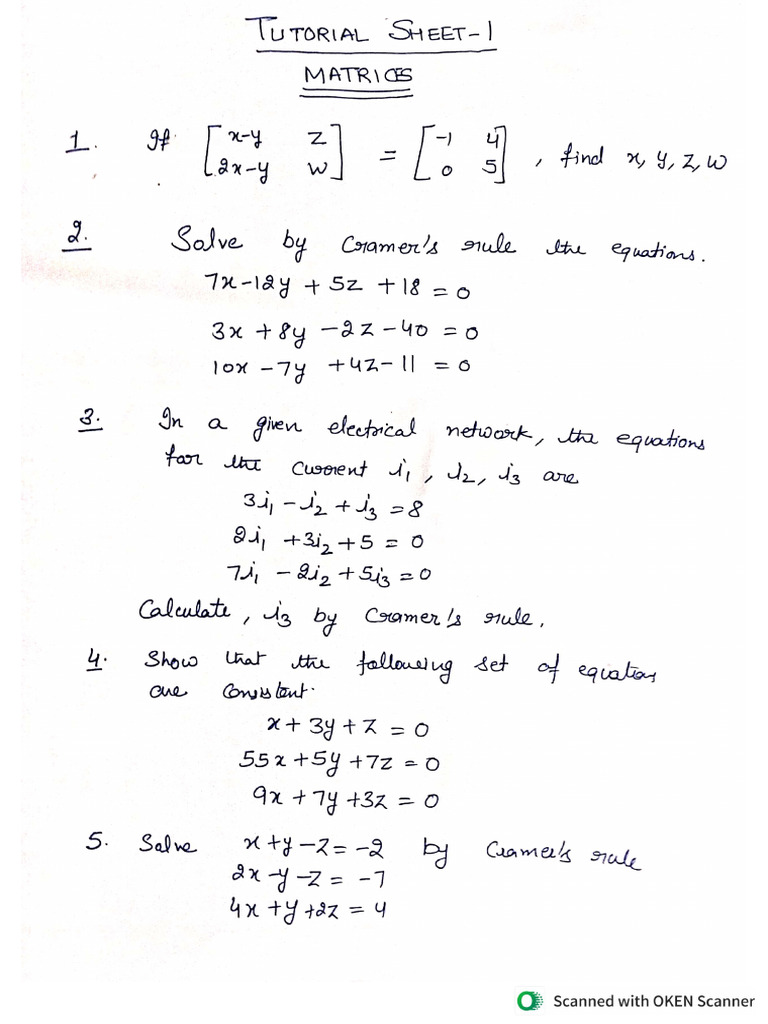 TUTORIAL SHEET-1
MATRICES
1. If [x-y z] = [-1 4] , find x, y, z, w
[2x-y w] [0 5]
2. Solve by Cramer's rule the equations.
7x-12y + 5z + 18 = 0
3x + 8y - 2z - 40 = 0
10x - 7y + 4z - 11 = 0
3. In a given electrical network, the equations
for the current i1, i2, i3 are
3i1 - i2 + i3 = 8
2i1 + 3i2 + 5 = 0
7i1 - 2i2 + 5i3 = 0
Calculate, i3 by Cramer's rule.
4. Show that the following set of equations
are consistent.
x + 3y + z = 0
55x + 5y + 7z = 0
9x + 7y + 3z = 0
5. Solve x + y - z = -2 by Cramer's rule
2x - y - z = -7
4x + y + 2z = 4
Scanned with OKEN Scanner